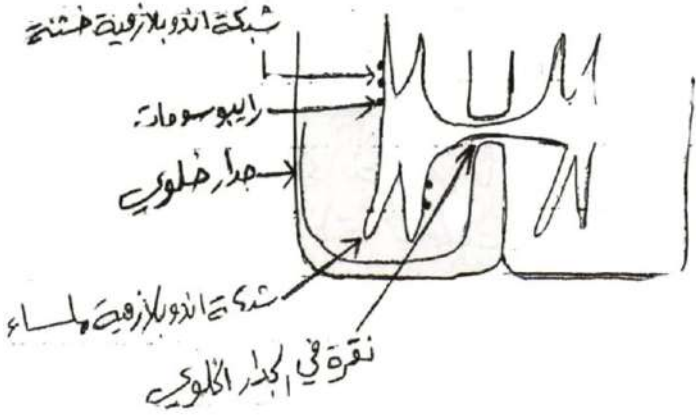 شبكة اندوبلازمية خشنة
رايبوسومات
جدار خلوي
شبكة اندوبلازمية ملساء
نقرة في الجدار الخلوي